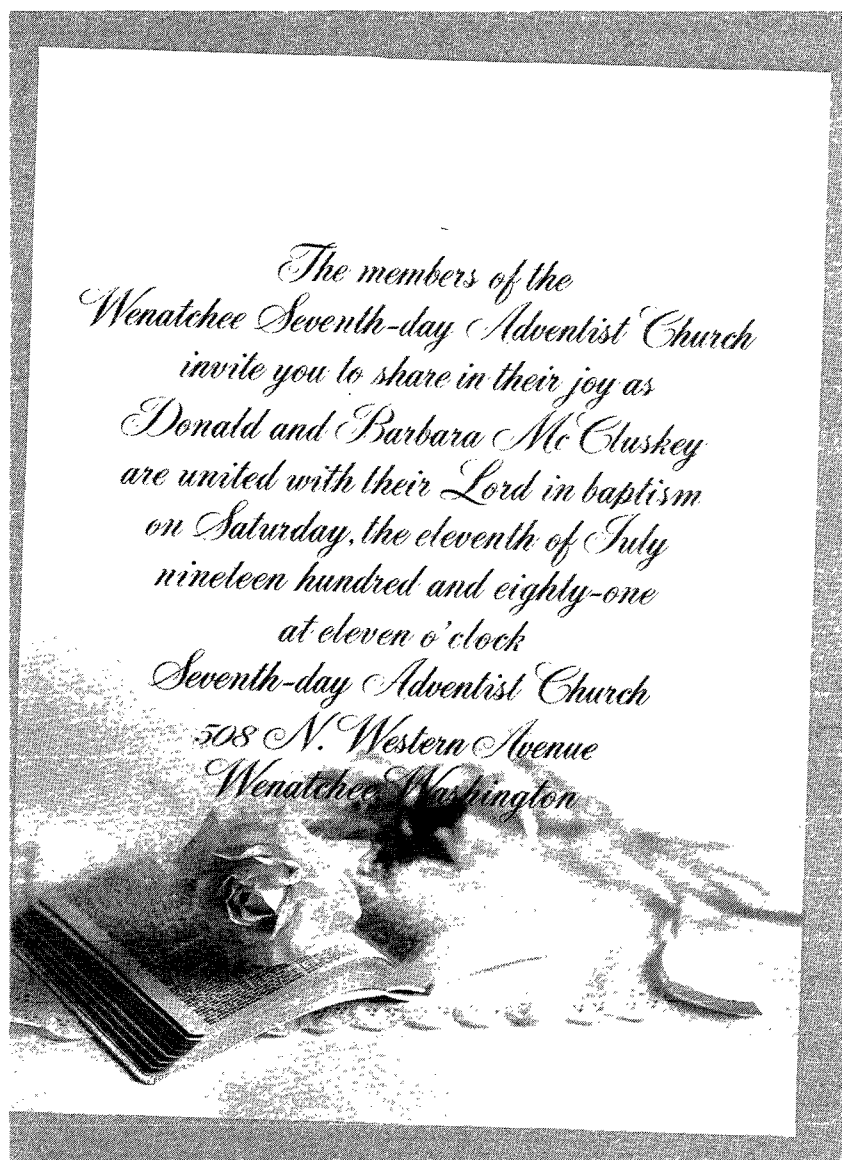 The members of the
Wenatchee Seventh-day Adventist Church
invite you to share in their joy as
Donald and Barbara McCluskey
are united with their Lord in baptism
on Saturday, the eleventh of July
nineteen hundred and eighty-one
at eleven o'clock
Seventh-day Adventist Church
508 N. Western Avenue
Wenatchee, Washington